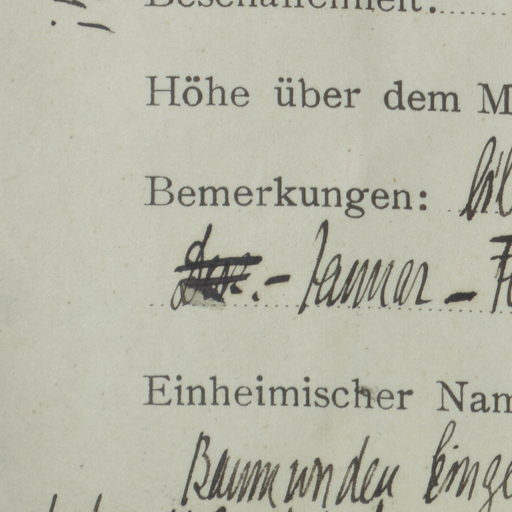 Beschaffenheit:
Höhe über dem M
Bemerkungen:
Dez. - Januar - Fe
Einheimischer Nam
Baumwunden